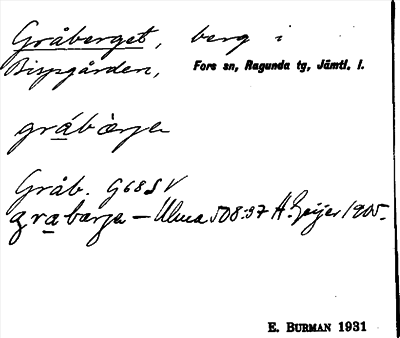 Gråberget, berg i
Bispgården, Fors sn, Ragunda tg, Jämtl. l.
gràbærje
Gråb. G68SV
grabærje – Ulma 508:37 H. Geijer 1905.
E. BURMAN 1931